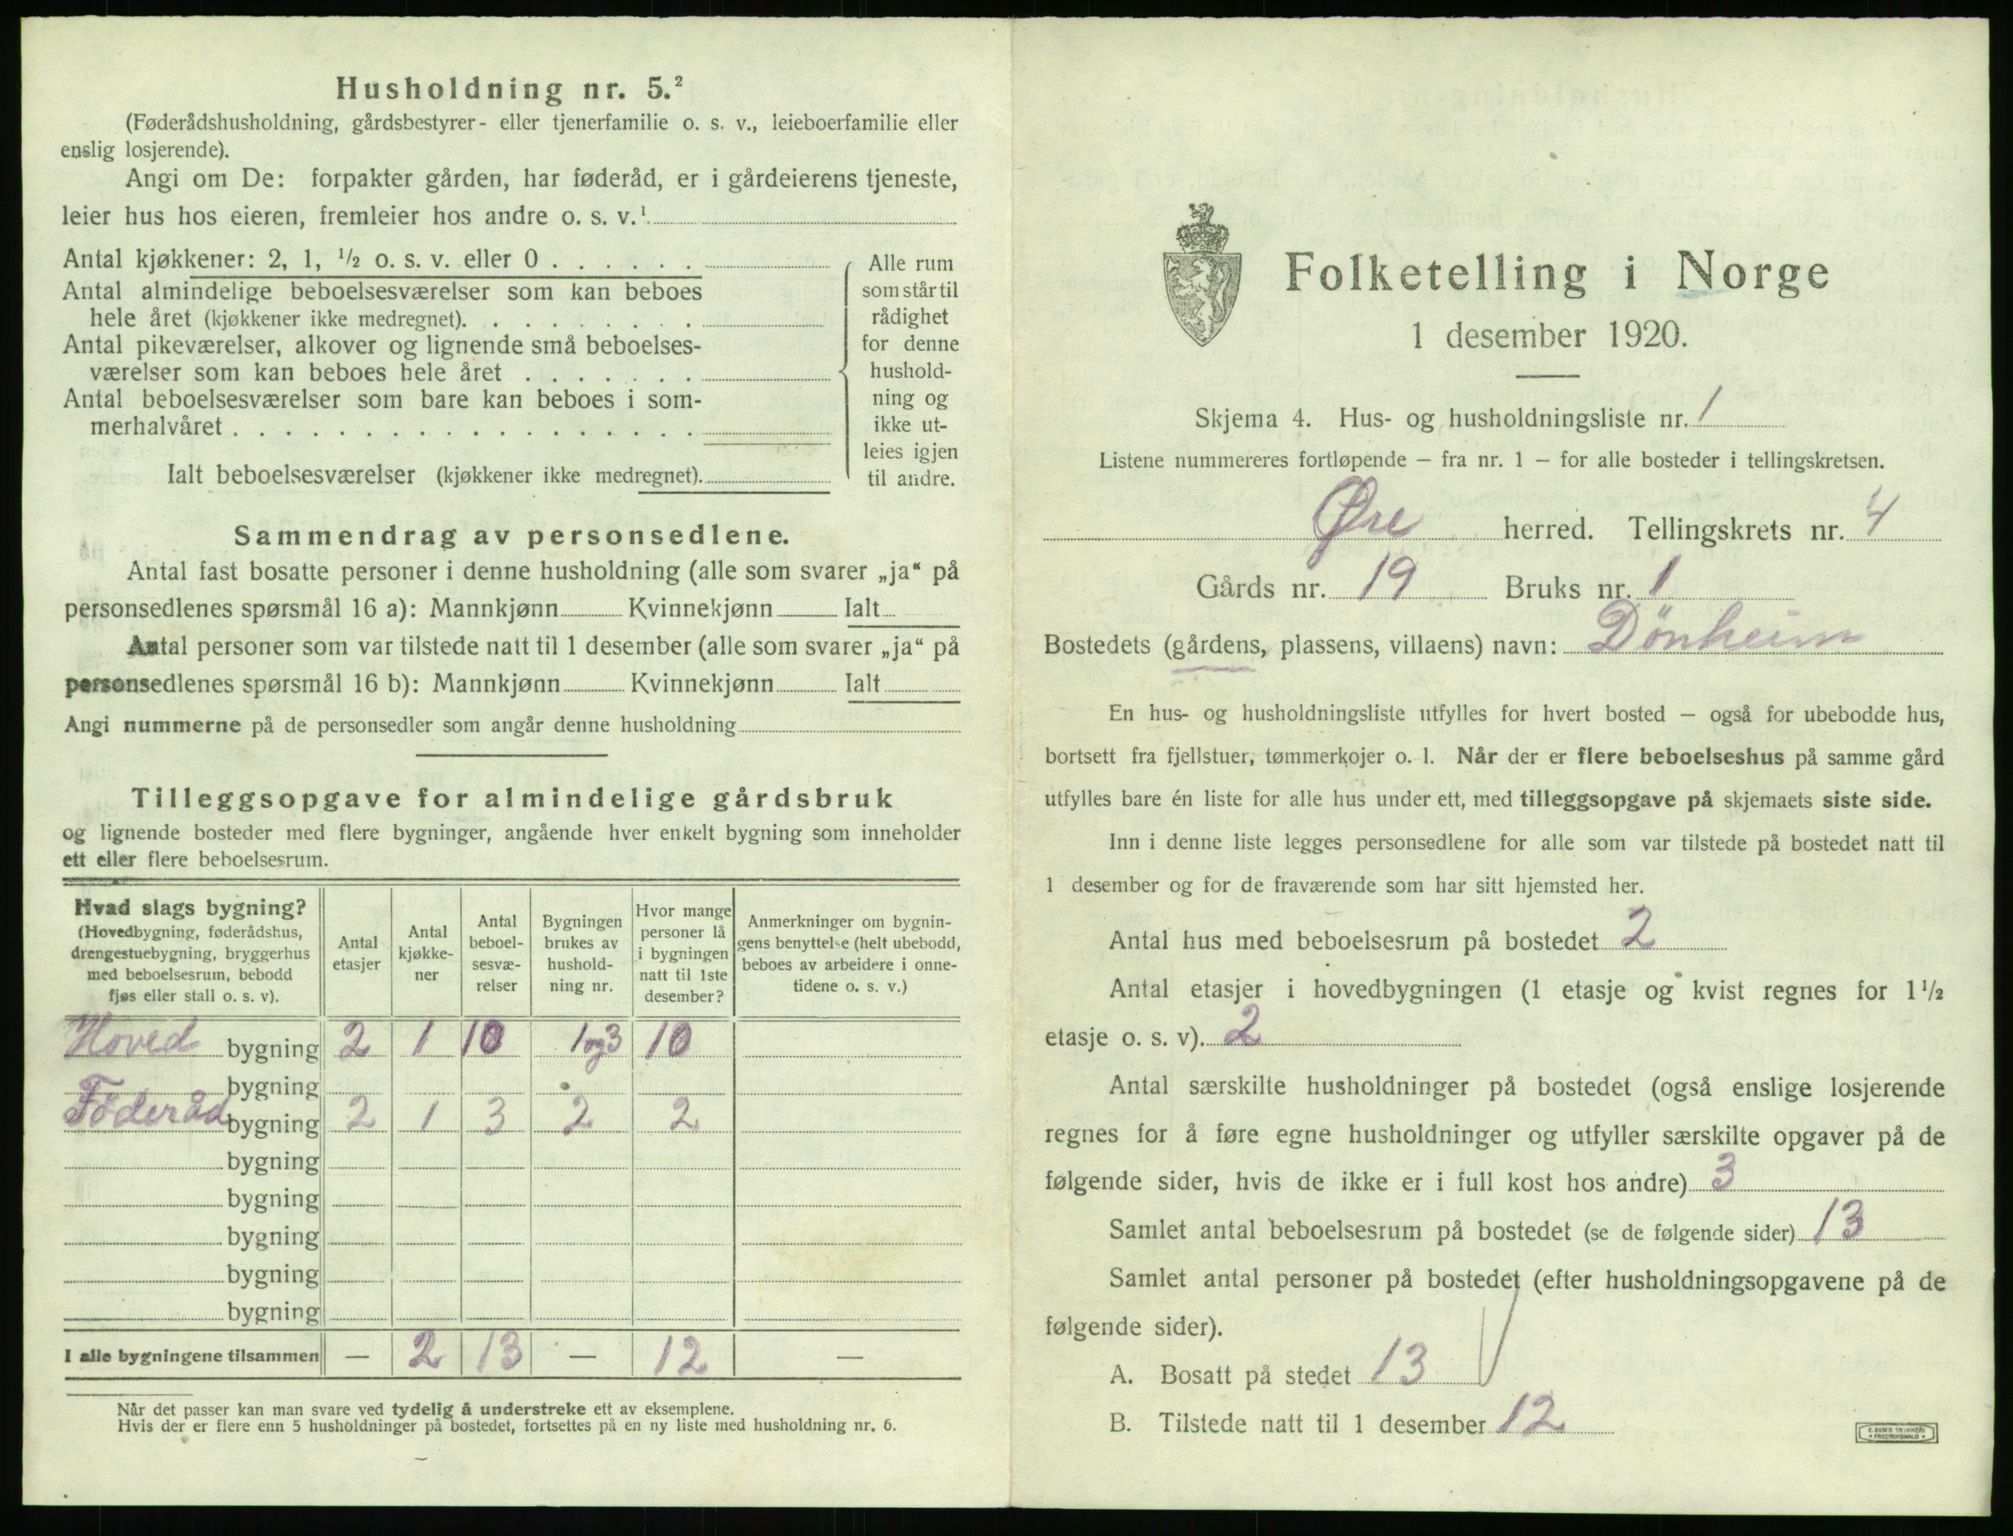 Husholdning nr. 5.²
(Føderådshusholdning, gårdsbestyrer- eller tjenerfamilie o. s. v., leieboerfamilie eller
enslig losjerende).
Angi om De: forpakter gården, har føderåd, er i gårdeierens tjeneste,
leier hus hos eieren, fremleier hos andre o. s. v.¹
Antal kjøkkener: 2, 1, ½ o. s. v. eller 0 . . . . . .
Antal almindelige beboelsesværelser som kan beboes
hele året (kjøkkener ikke medregnet). . . . . . . . .
Antal pikeværelser, alkover og lignende små beboelses-
værelser som kan beboes hele året . . . . . . .
Antal beboelsesværelser som bare kan beboes i som-
merhalvåret . . . . . . . . . . . . . . . . . .
Ialt beboelsesværelser (kjøkkener ikke medregnet).
Alle rum
som står til
rådighet
for denne
hushold-
ning og
ikke ut-
leies igjen
til andre.
Sammendrag av personsedlene.
Antal fast bosatte personer i denne husholdning (alle som svarer „ja“ på
personsedlenes spørsmål 16 a): Mannkjønn Kvinnekjønn Ialt
Antal personer som var tilstede natt til 1 desember (alle som svarer „ja“ på
personsedlenes spørsmål 16 b): Mannkjønn Kvinnekjønn Ialt
Angi nummerne på de personsedler som angår denne husholdning
Tilleggsopgave for almindelige gårdsbruk
og lignende bosteder med flere bygninger, angående hver enkelt bygning som inneholder
ett eller flere beboelsesrum.
Hvad slags bygning?
(Hovedbygning, føderådshus,
drengestuebygning, bryggerhus
med beboelsesrum, bebodd
fjøs eller stall o. s. v).
Antal
etasjer
Antal
kjøkke-
ner
Antal
beboel-
sesvæ-
relser
Bygningen
brukes av
hushold-
ning nr.
Hvor mange
personer lå
i bygningen
natt til 1ste
desember?
Anmerkninger om bygnin-
gens benyttelse (helt ubebodd,
beboes av arbeidere i onne-
tidene o. s. v.)
Hoved bygning 2 1 10 1 og 3 10
bygning
Föderåd bygning 2 1 3 2 2
bygning
bygning
bygning
bygning
bygning
I alle bygningene tilsammen — 2 13 — 12 —
Når det passer kan man svare ved tydelig å understreke ett av eksemplene.
Hvis der er flere enn 5 husholdninger på bostedet, fortsettes på en ny liste med husholdning nr. 6.
Folketelling i Norge
1 desember 1920.
Skjema 4. Hus- og husholdningsliste nr. 1
Listene nummereres fortløpende – fra nr. 1 – for alle bosteder i tellingskretsen.
Øre herred. Tellingskrets nr. 4
Gårds nr. 19 Bruks nr. 1
Bostedets (gårdens, plassens, villaens) navn: Dönheim
En hus- og husholdningsliste utfylles for hvert bosted – også for ubebodde hus,
bortsett fra fjellstuer, tømmerkojer o. l. Når der er flere beboelseshus på samme gård
utfylles bare én liste for alle hus under ett, med tilleggsopgave på skjemaets siste side.
Inn i denne liste legges personsedlene for alle som var tilstede på bostedet natt til
1 desember og for de fraværende som har sitt hjemsted her.
Antal hus med beboelsesrum på bostedet 2
Antal etasjer i hovedbygningen (1 etasje og kvist regnes for 1½
etasje o. s. v). 2
Antal særskilte husholdninger på bostedet (også enslige losjerende
regnes for å føre egne husholdninger og utfyller særskilte opgaver på de
følgende sider, hvis de ikke er i full kost hos andre) 3
Samlet antal beboelsesrum på bostedet (se de følgende sider) 13
Samlet antal personer på bostedet (efter husholdningsopgavene på de
følgende sider).
A. Bosatt på stedet 13
B. Tilstede natt til 1 desember 12